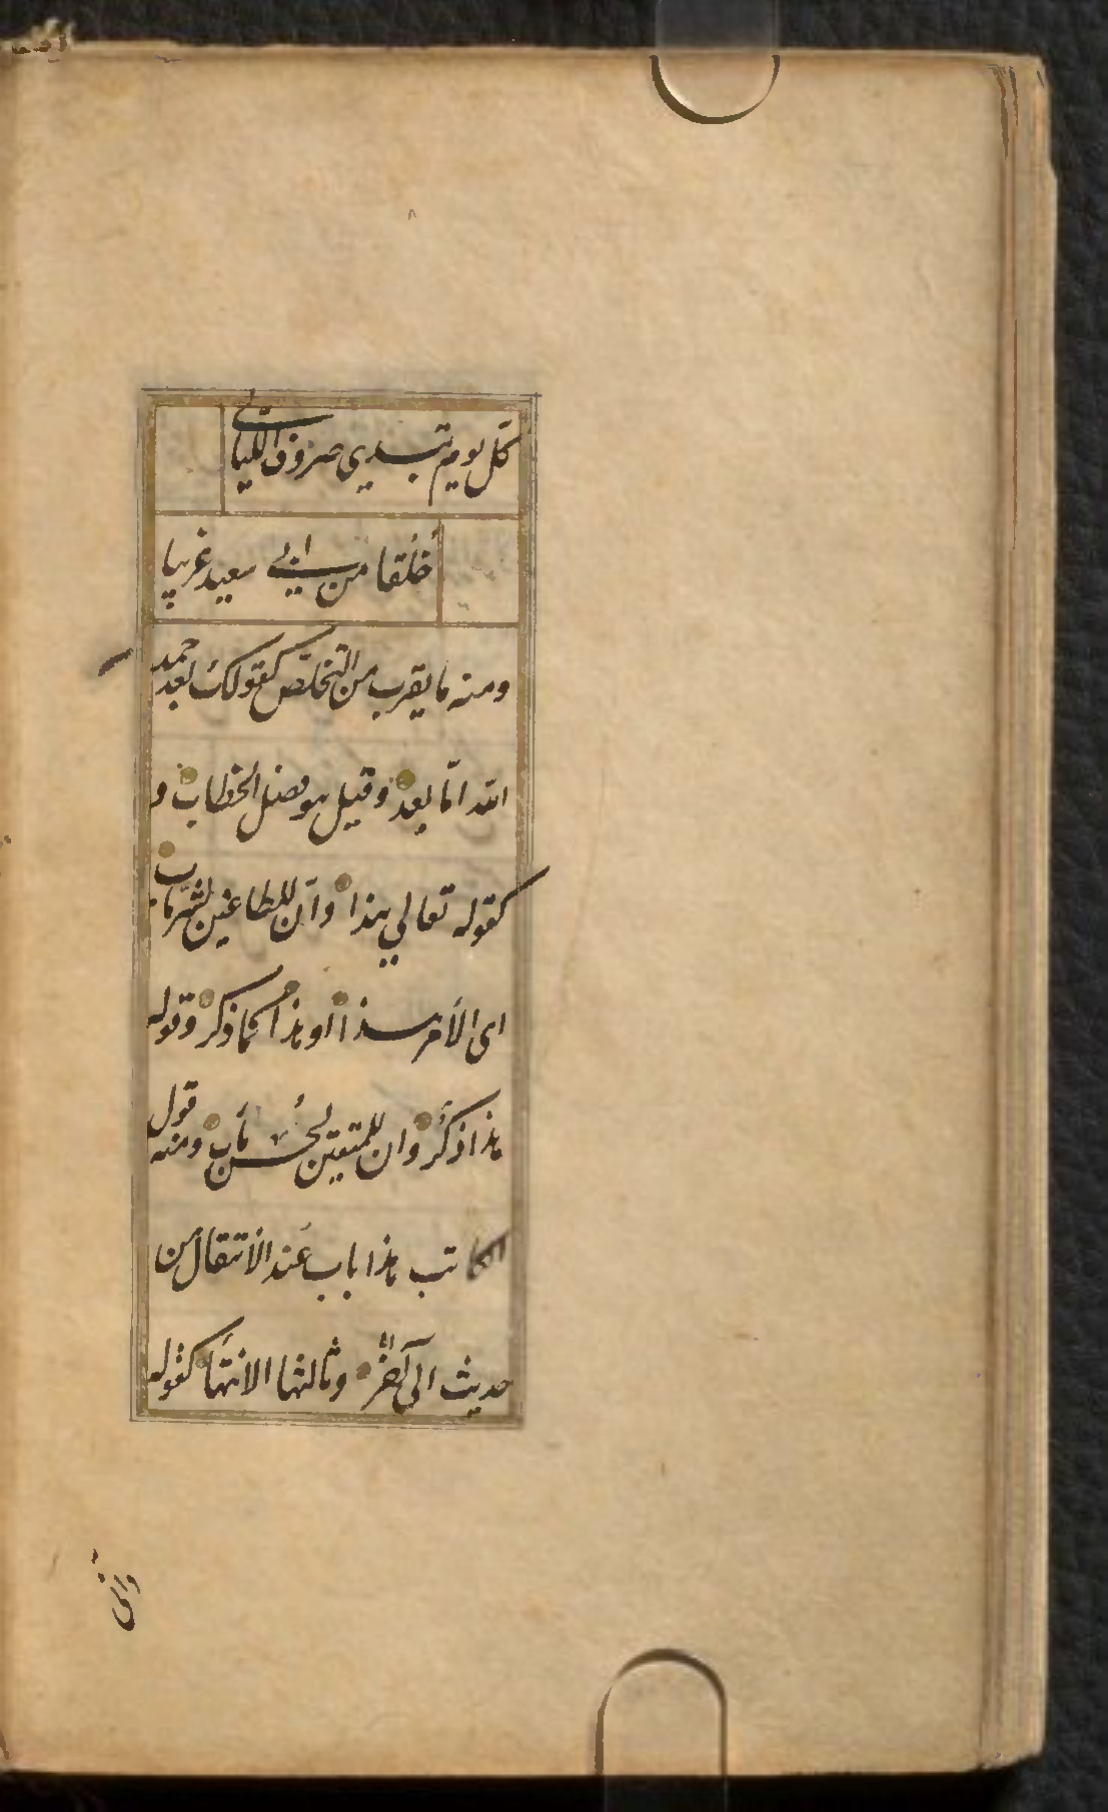 كل يوم تبدي صروف الليالي
خلقا من ابي سعيد غريبا
ومنه ما يقرب من التخلص كقولك بعد حمد
الله اما بعد وقيل هو فصل الخطاب و
كقوله تعالي هذا وان للطاغين لشر مآب
اى الأمر هذا او هذا كما ذكر وقوله
هذا ذكر وان للمتقين لحسن مآب ومنه قول
الكاتب هذا باب عند الانتقال من
حديث الى آخر وثالثها الانتهاء كقوله
وانى